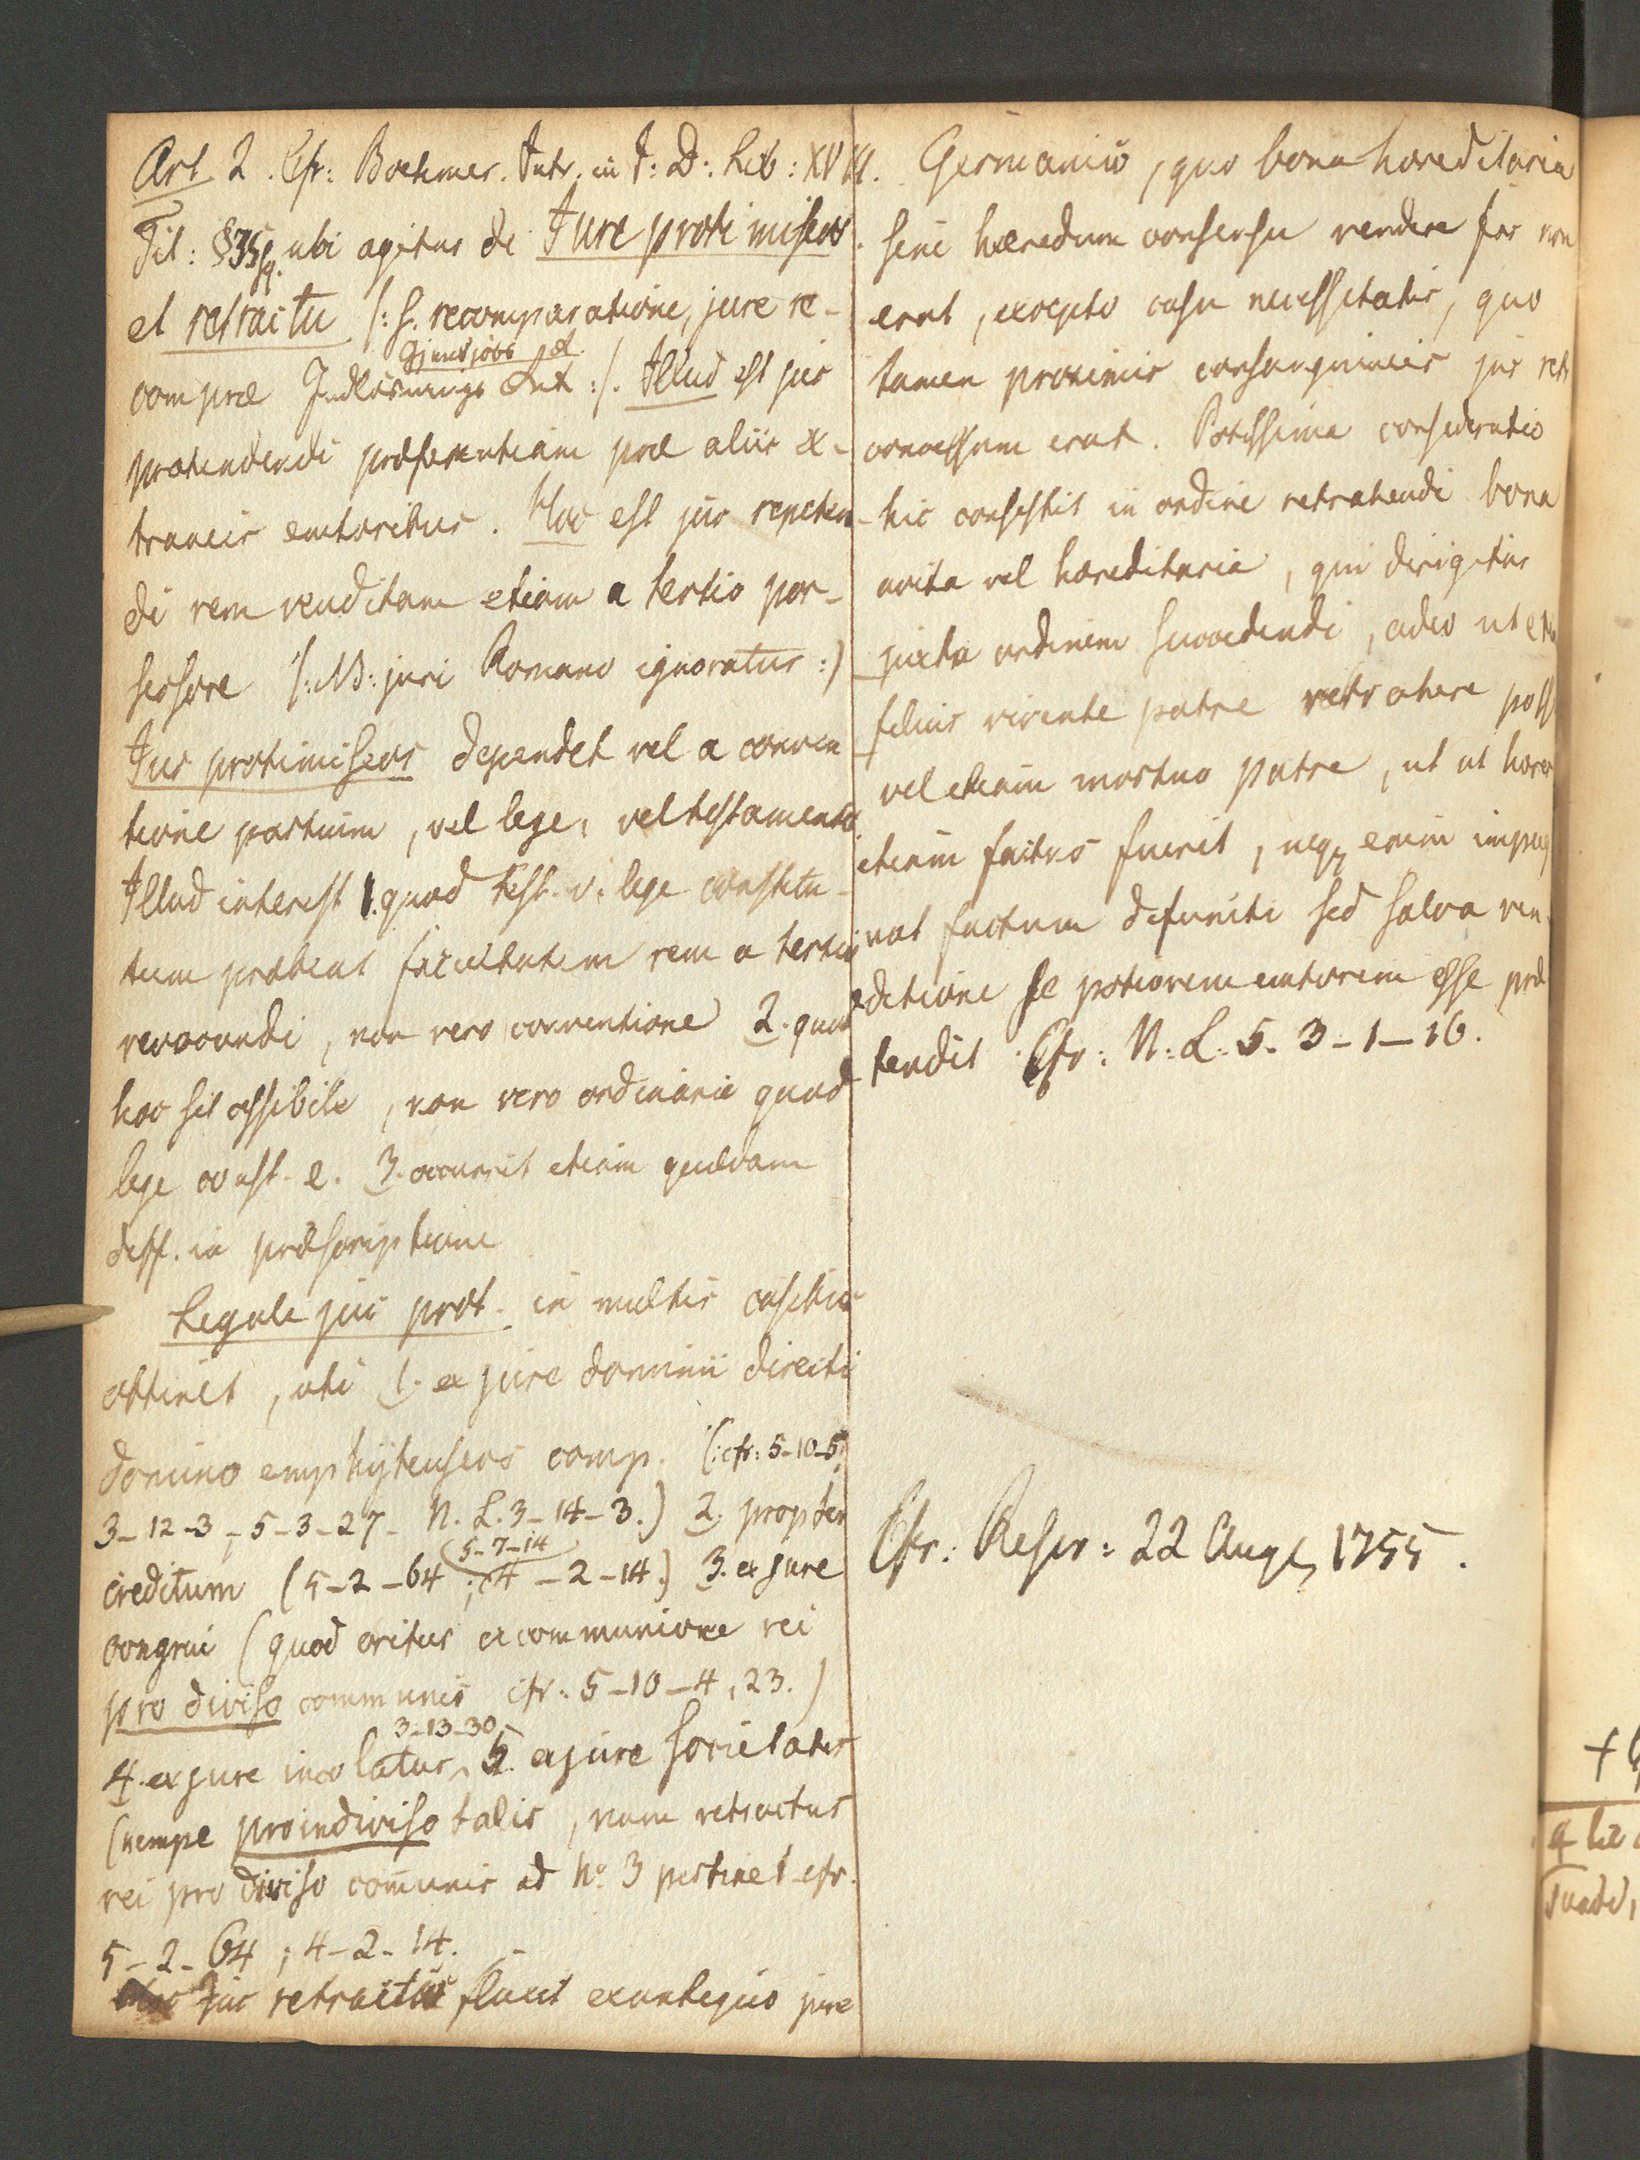 Art 2. Cfr: Boehmer. Intr. in J: D: Lib: XVIII.
Tit: §35 sq. ubi agitur de Jure protimiseos
et retractu /: s. recomparatione, jure re-
Gjenkjøbs
compræ Indløsnings Ret :/. Illud est jus
prætendendi præferentiam præ aliis ex-
traneis emtoribus. Hoc est jus repeten-
di rem venditam etiam a tertio pos-
sessore /: NB: juri Romano ignoratur :/
Jus protimiseos dependet vel a conven
tione partium, vel lege, vel testamento
Illud interest 1. quod test. v. lege constitu-
tum præbeat facultatem rem a tertio
revocandi, non vero conventione 2. quod
hoc sit cessibile, non vero ordinarie quod
lege const. e. 3. occurrit etiam quædam
diff. in præscriptione
Legale jus prot. in multis casibus
obtinet, uti 1. ex jure dominii directi
domino emphyteuseos comp. (: cfr: 5-10-5;
3-12-3, 5-3-27. N. L. 3-14-3.) 2. propter
5-7-14
creditum (5-2-64; 4-2-14.) 3. ex jure
congrui (quod oritur ex communione rei
pro diviso communis cfr: 5-10-4, 23.)
3-13-30
4. ex jure incolatus, 5. ex jure societatis
(nempe pro indiviso talis, nam retractus
rei pro diviso com̄unis ad No. 3 pertinet cfr.
5-2-64; 4-2-14.
Jus retractus fluit ex antiquo jure
Germanico, quo bona hæreditaria
sine hæredum consensu vendere fas non
erat, excepto casu necessitatis, quo
tamen proximis consanguineis jus retr
concessum erat. Potissima consideratio
hic consistit in ordine retrahendi bona
avita vel hæreditaria, qui dirigitur
juxta ordinem succedendi, adeo ut
filius vivente patre retrahere poss
vel etiam mortuo patre, ut ut hæres
etiam factus fuerit, neqz enim impug
nat factum defuncti sed salva ven-
ditione se potiorem emtorem esse præ
tendit. Cfr: N: L: 5-3-1-16.
Cfr: Rescr: 22 Aug 1755.